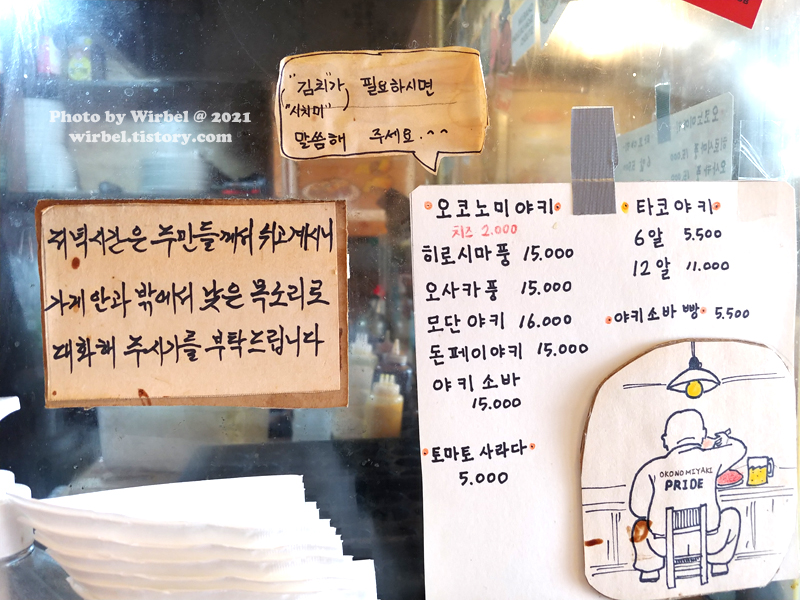 "김치"가 필요하시면
"시치미"
말씀해 주세요.^^
Photo by Wirbel @ 2021
wirbel.tistory.com
저녁시간은 주민들께서 쉬고계시니
가게 안과 밖에서 낮은 목소리로
대화해 주시기를 부탁드립니다
오코노미야키
치즈 2.000
히로시마풍 15.000
오사카풍 15.000
모단야키 16.000
돈페이야키 15.000
야키소바
15.000
토마토 사라다
5.000
타코야키
6알 5.500
12알 11.000
야키소바 빵 5.500
OKONOMIYAKI
PRIDE